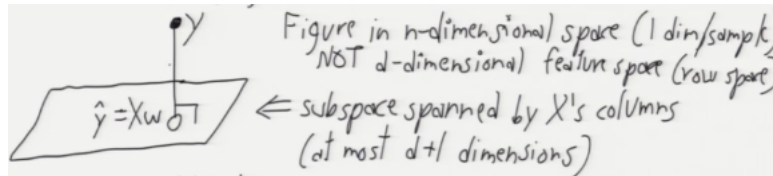 y
Figure in n-dimensional space (1 dim/sample
NOT d-dimensional) feature space (row space
ŷ = Xw
⇐ subspace spanned by X's columns
(at most d+1 dimensions)